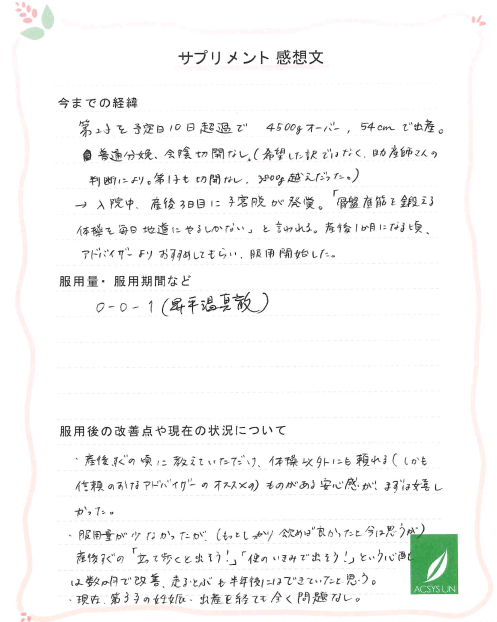 サプリメント 感想文
今までの経緯
第2子を予定日10日超過で 4500gオーバー, 54cmで出産。
普通分娩、会陰切開なし。(希望した訳ではなく、助産師さんの
判断により。第1子も切開なし、3800g越えだった。)
→ 入院中、産後3日目に子宮脱が発覚。「骨盤底筋を鍛える
体操を毎日地道にやるしかない」と言われる。産後1か月になる頃、
アドバイザーよりおすすめしてもらい、服用開始した。
服用量・服用期間など
0-0-1 (昇平温真散)
服用後の改善点や現在の状況について
・産後すぐの頃に教えていただけ、体操以外にも頼れる(しかも
信頼のおけるアドバイザーのオススメの)ものがある安心感が、まずは嬉し
かった。
・服用量が少なかったが、(もっとしっかり飲めば良かったと今は思うが)
産後すぐの「立って歩くと出そう!」「便のいきみで出そう!」という心配
は数か月で改善、走るとぶも半年後にはできていたと思う。
・現在、第3子の妊娠・出産を経ても全く問題なし。
ACSYS UN